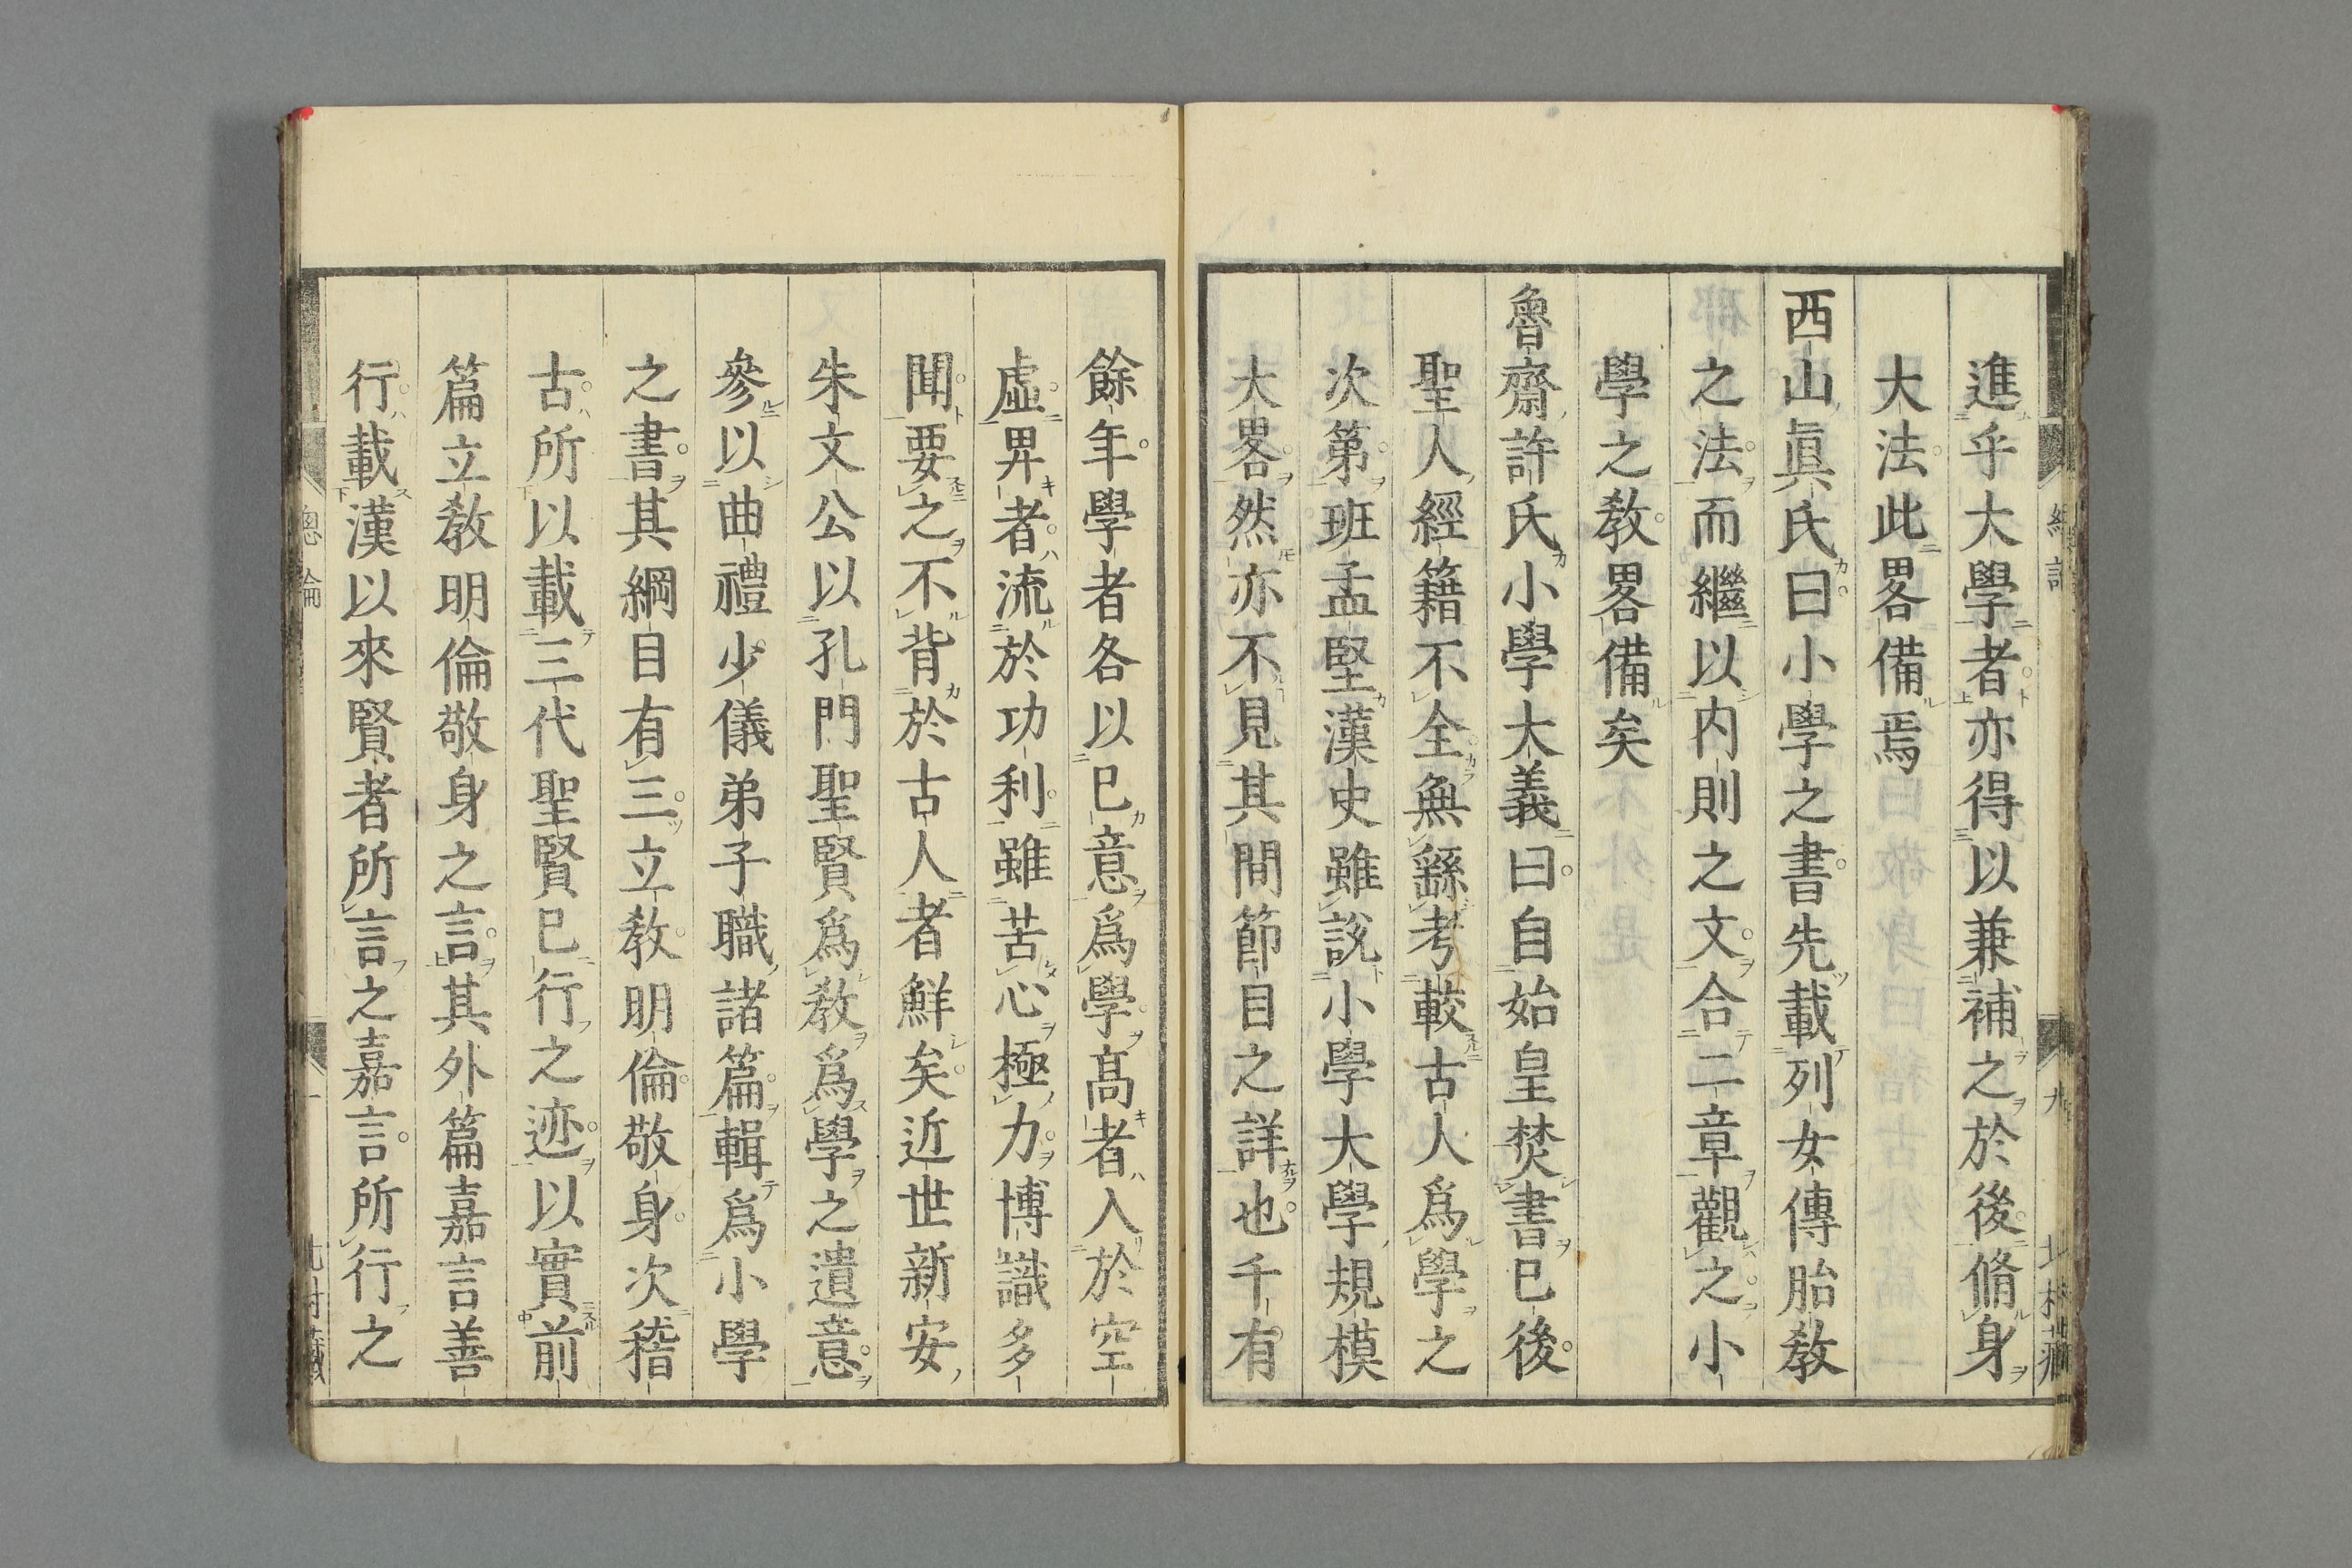 進乎大學者亦得以兼補之於後脩身
大法此畧備焉
西山眞氏曰小學之書先載列女傳胎敎
之法而繼以内則之文合二章觀之小
學之敎畧備矣
魯齋許氏小學大義曰自始皇焚書已後
聖人經籍不全無繇考較古人爲學之
次第班孟堅漢史雖説小學大學規模
大畧然亦不見其間節目之詳也千有
餘年學者各以已意爲學高者入於空
虛卑者流於功利雖苦心極力博識多
聞要之不背於古人者鮮矣近世新安
朱文公以孔門聖賢爲敎爲學之遺意
參以曲禮少儀弟子職諸篇輯爲小學
之書其綱目有三立敎明倫敬身次稽
古所以載三代聖賢已行之迹以實前
篇立敎明倫敬身之言其外篇嘉言善
行載漢以來賢者所言之嘉言所行之
總論